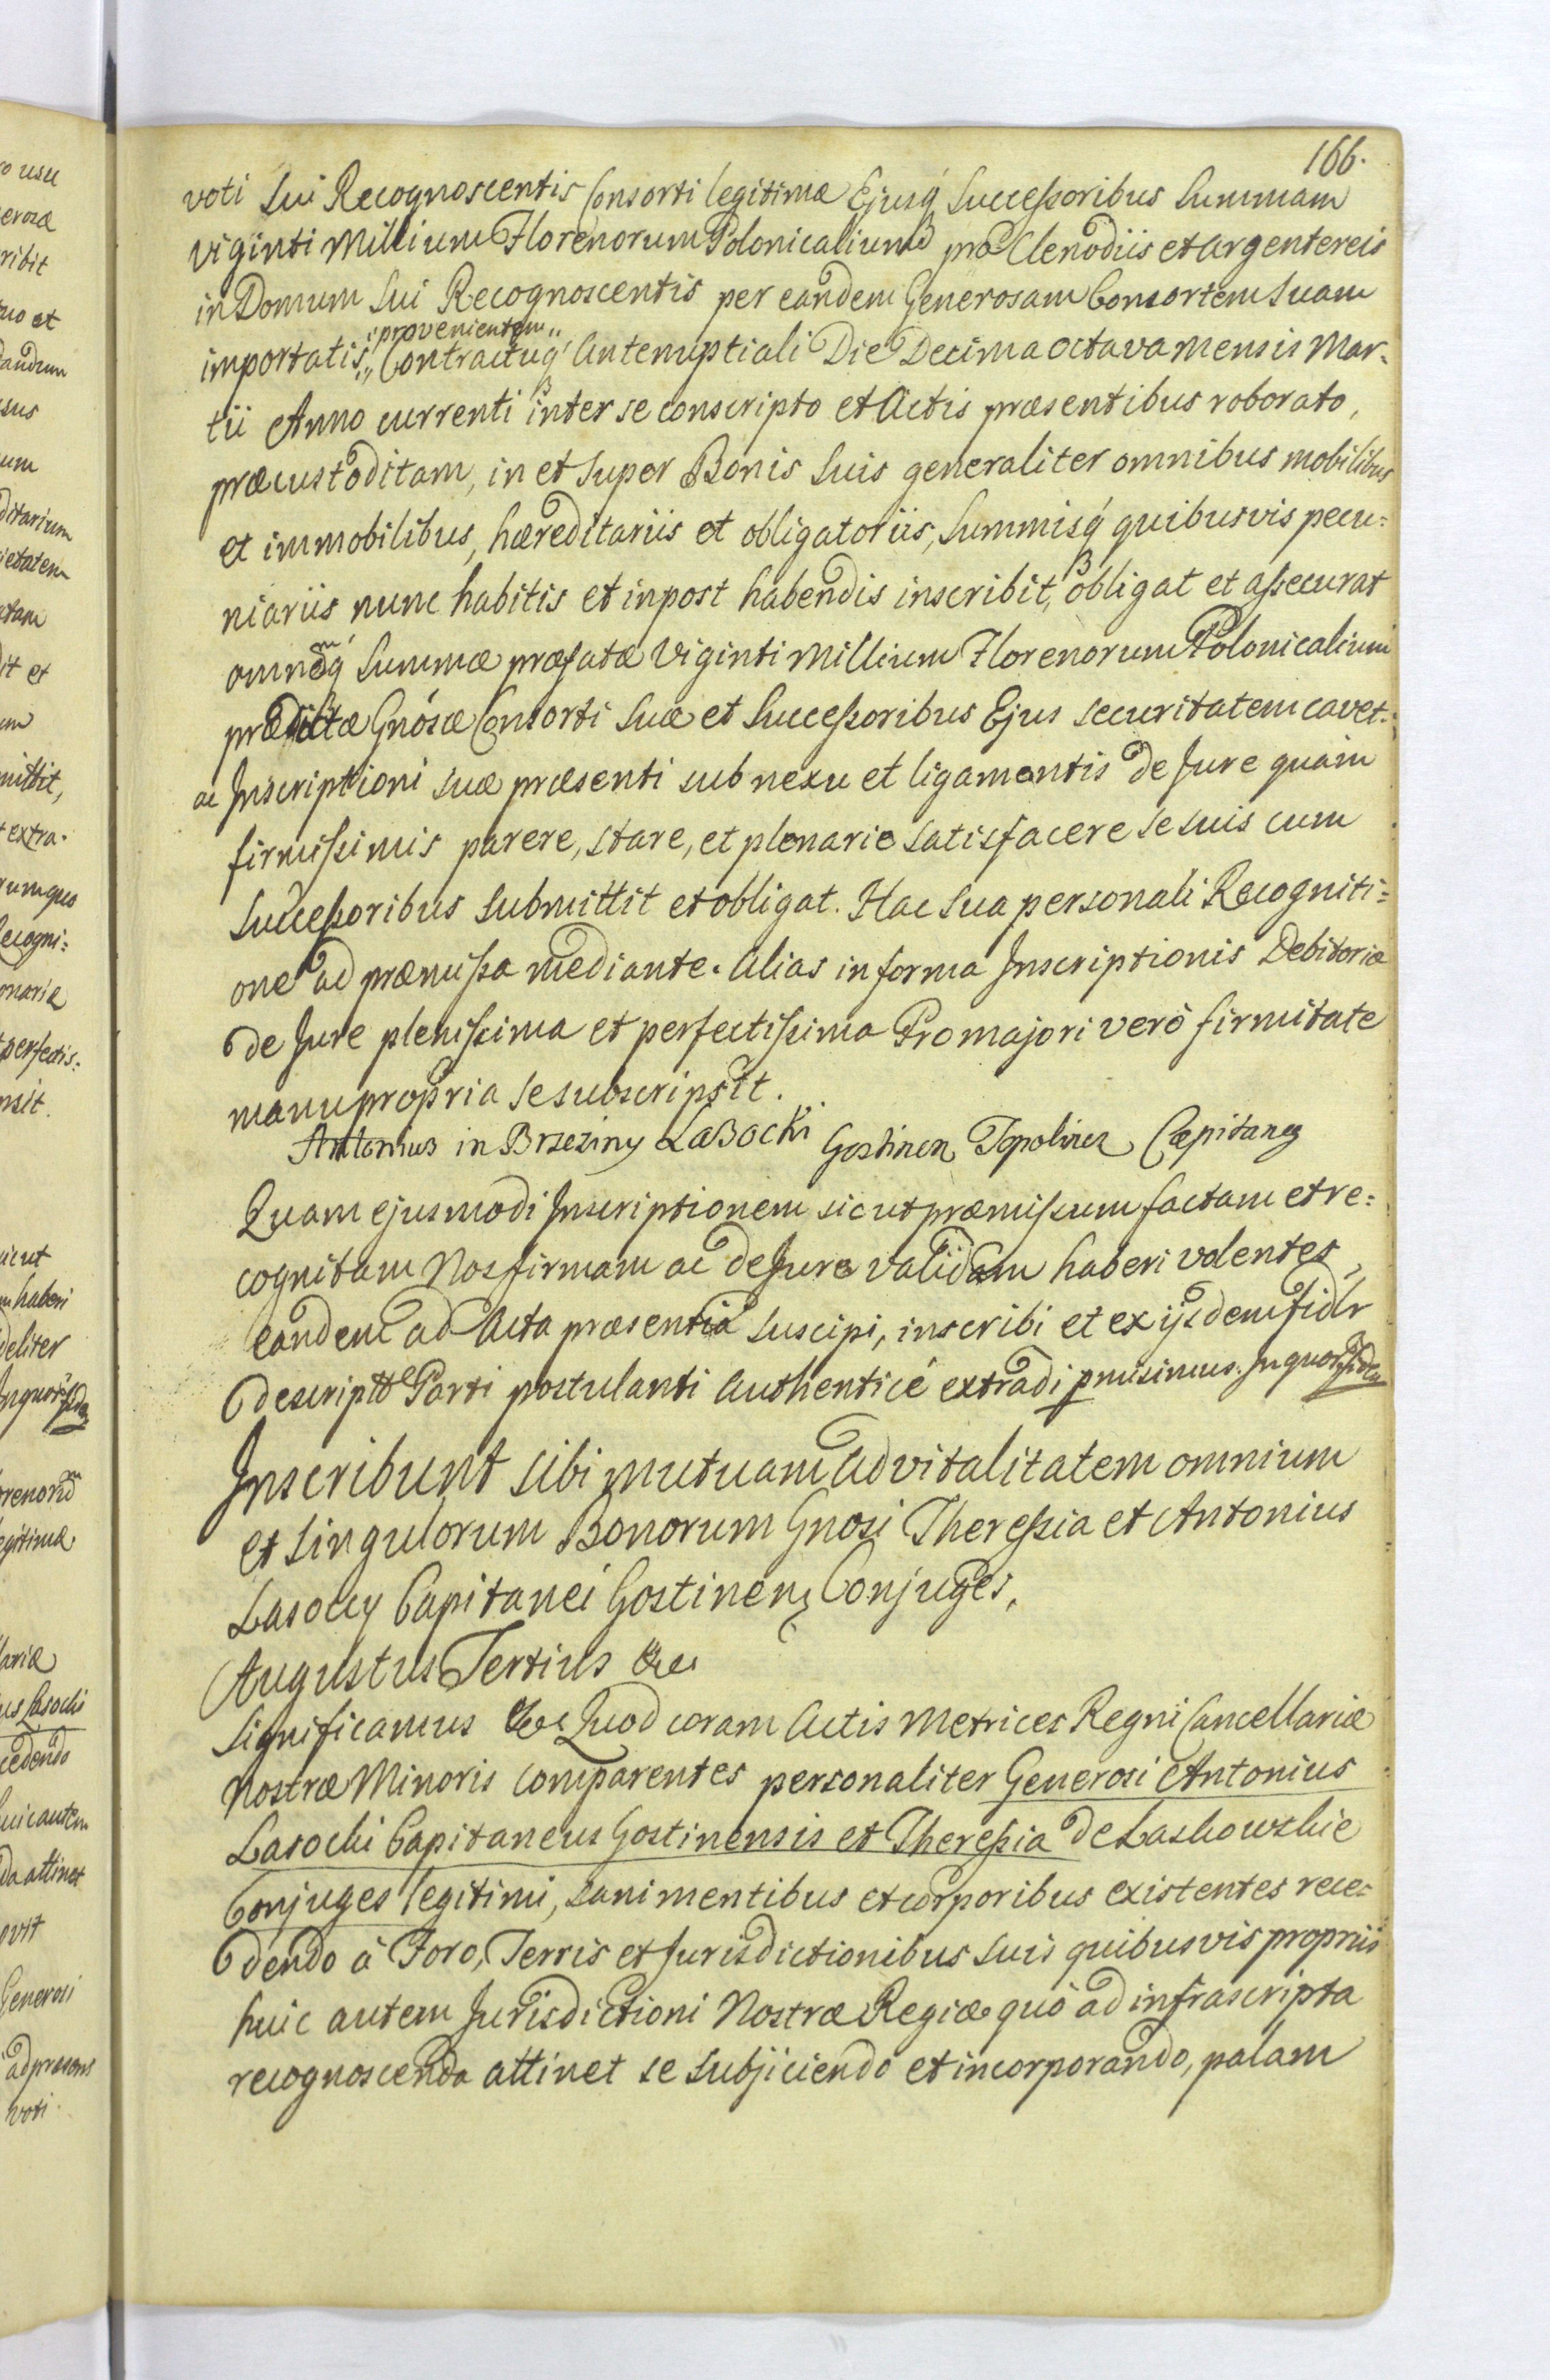 166.
voti sui Recognoscentis Consorti legitimæ Ejusq́ Successoribus Summam
viginti Millium Florenorum Polonicalium pro Clenodiis et Argentereis
in Domum sui Recognoscentis per eandem Generosam Consortem suam
provenientem
importatis Contractuq́ Antenuptiali Die Decima octava mensis Mar-
tii Anno currenti inter se conscripto et Actis præsentibus roborato,
præcustoditam, in et super Bonis suis generaliter omnibus mobilibus
et immobilibus, hæreditariis et obligatoriis, Summisq́ quibusvis pecu=
niariis nunc habitis et inpost habendis inscribit, obligat et assecurat
omnẽq́ Summæ præfatæ Viginti Millium Florenorum Polonicalium
prædictæ Gnósæ Consorti suæ et Successoribus Ejus securitatem cavet.
ac Inscriptioni suæ præsenti sub nexu et ligamentis de Jure quàm
firmissimis parere, stare, et plenarie satisfacere se suis cum
Successoribus submittit et obligat. Hac sua personali Recogniti=
one ad præmissa mediante. Alias in forma Inscriptionis Debitoriæ
de Jure plenissima et perfectissima Pro majori verò firmitate
manu propria se subscripsit.
Antonius in Brzeziny Lasocki Gostinen Topolinen Capitaneus
Quam ejusmodi Inscriptionem sic ut præmissum factam et re=
cognitam Nos firmam ac de Jure validam haberi volentes,
eandem ad Acta præsentia suscipi, inscribi et ex ijsdem fidlr
descriptã Parti postulanti Authenticé extradi pmisimus. In quor fidem
Inscribunt sibi mutuam Advitalitatem omnium
et singulorum Bonorum Gnosi Theressia et Antonius
Lasoccy Capitanei Gostinen Conjuges,
Augustus Tertius &c
Significamus &c Quod coram Actis Metrices Regni Cancellariæ
Nostræ Minoris comparentes personaliter Generosi Antonius
Lasocki Capitaneus Gostinensis et Theressia de Laskowskie
Conjuges legitimi, sani mentibus et corporibus existentes rece=
dendo à Foro, Terris et Jurisdictionibus suis quibusvis propriis
huic autem Jurisdictioni Nostræ Regiæ quò ad infrascripta
recognoscenda attinet se subjiciendo et incorporando, palam